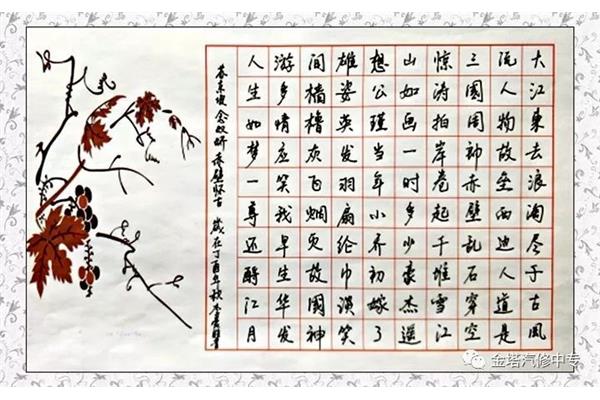 大江东去浪淘尽千古风
流人物故垒西边人道是
三国周郎赤壁乱石穿空
惊涛拍岸卷起千堆雪江
山如画一时多少豪杰遥
想公瑾当年小乔初嫁了
雄姿英发羽扇纶巾谈笑
间樯橹灰飞烟灭故国神
游多情应笑我早生华发
人生如梦一尊还酹江月
苏东坡念奴娇赤壁怀古 岁在丁酉年秋
金塔汽修中专